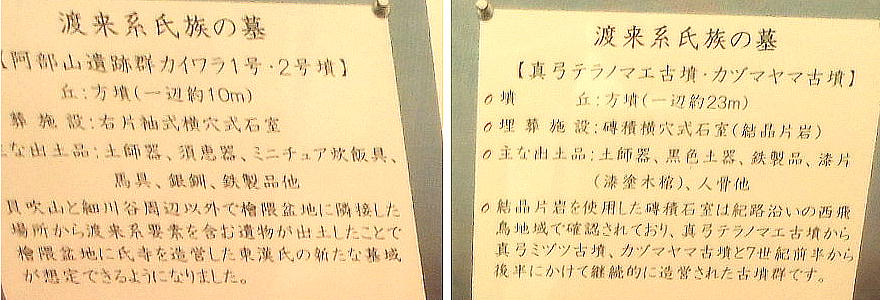 渡来系氏族の墓
【阿部山遺跡群カイワラ1号・2号墳】
丘:方墳(一辺約10m)
葬施設:右片袖式横穴式石室
な出土品:土師器、須恵器、ミニチュア炊飯具、
馬具、銀釧、鉄製品他
貝吹山と細川谷周辺以外で檜隈盆地に隣接した
場所から渡来系要素を含む遺物が出土したことで
檜隈盆地に氏寺を造営した東漢氏の新たな墓域
が想定できるようになりました。
渡来系氏族の墓
【真弓テラノマエ古墳・カヅマヤマ古墳】
墳 丘:方墳(一辺約23m)
埋葬施設:磚積横穴式石室(結晶片岩)
主な出土品:土師器、黒色土器、鉄製品、漆片
(漆塗木棺)、人骨他
結晶片岩を使用した磚積石室は紀路沿いの西飛
鳥地域で確認されており、真弓テラノマエ古墳から
真弓ミヅツ古墳、カヅマヤマ古墳と7世紀前半から
後半にかけて継続的に造営された古墳群です。